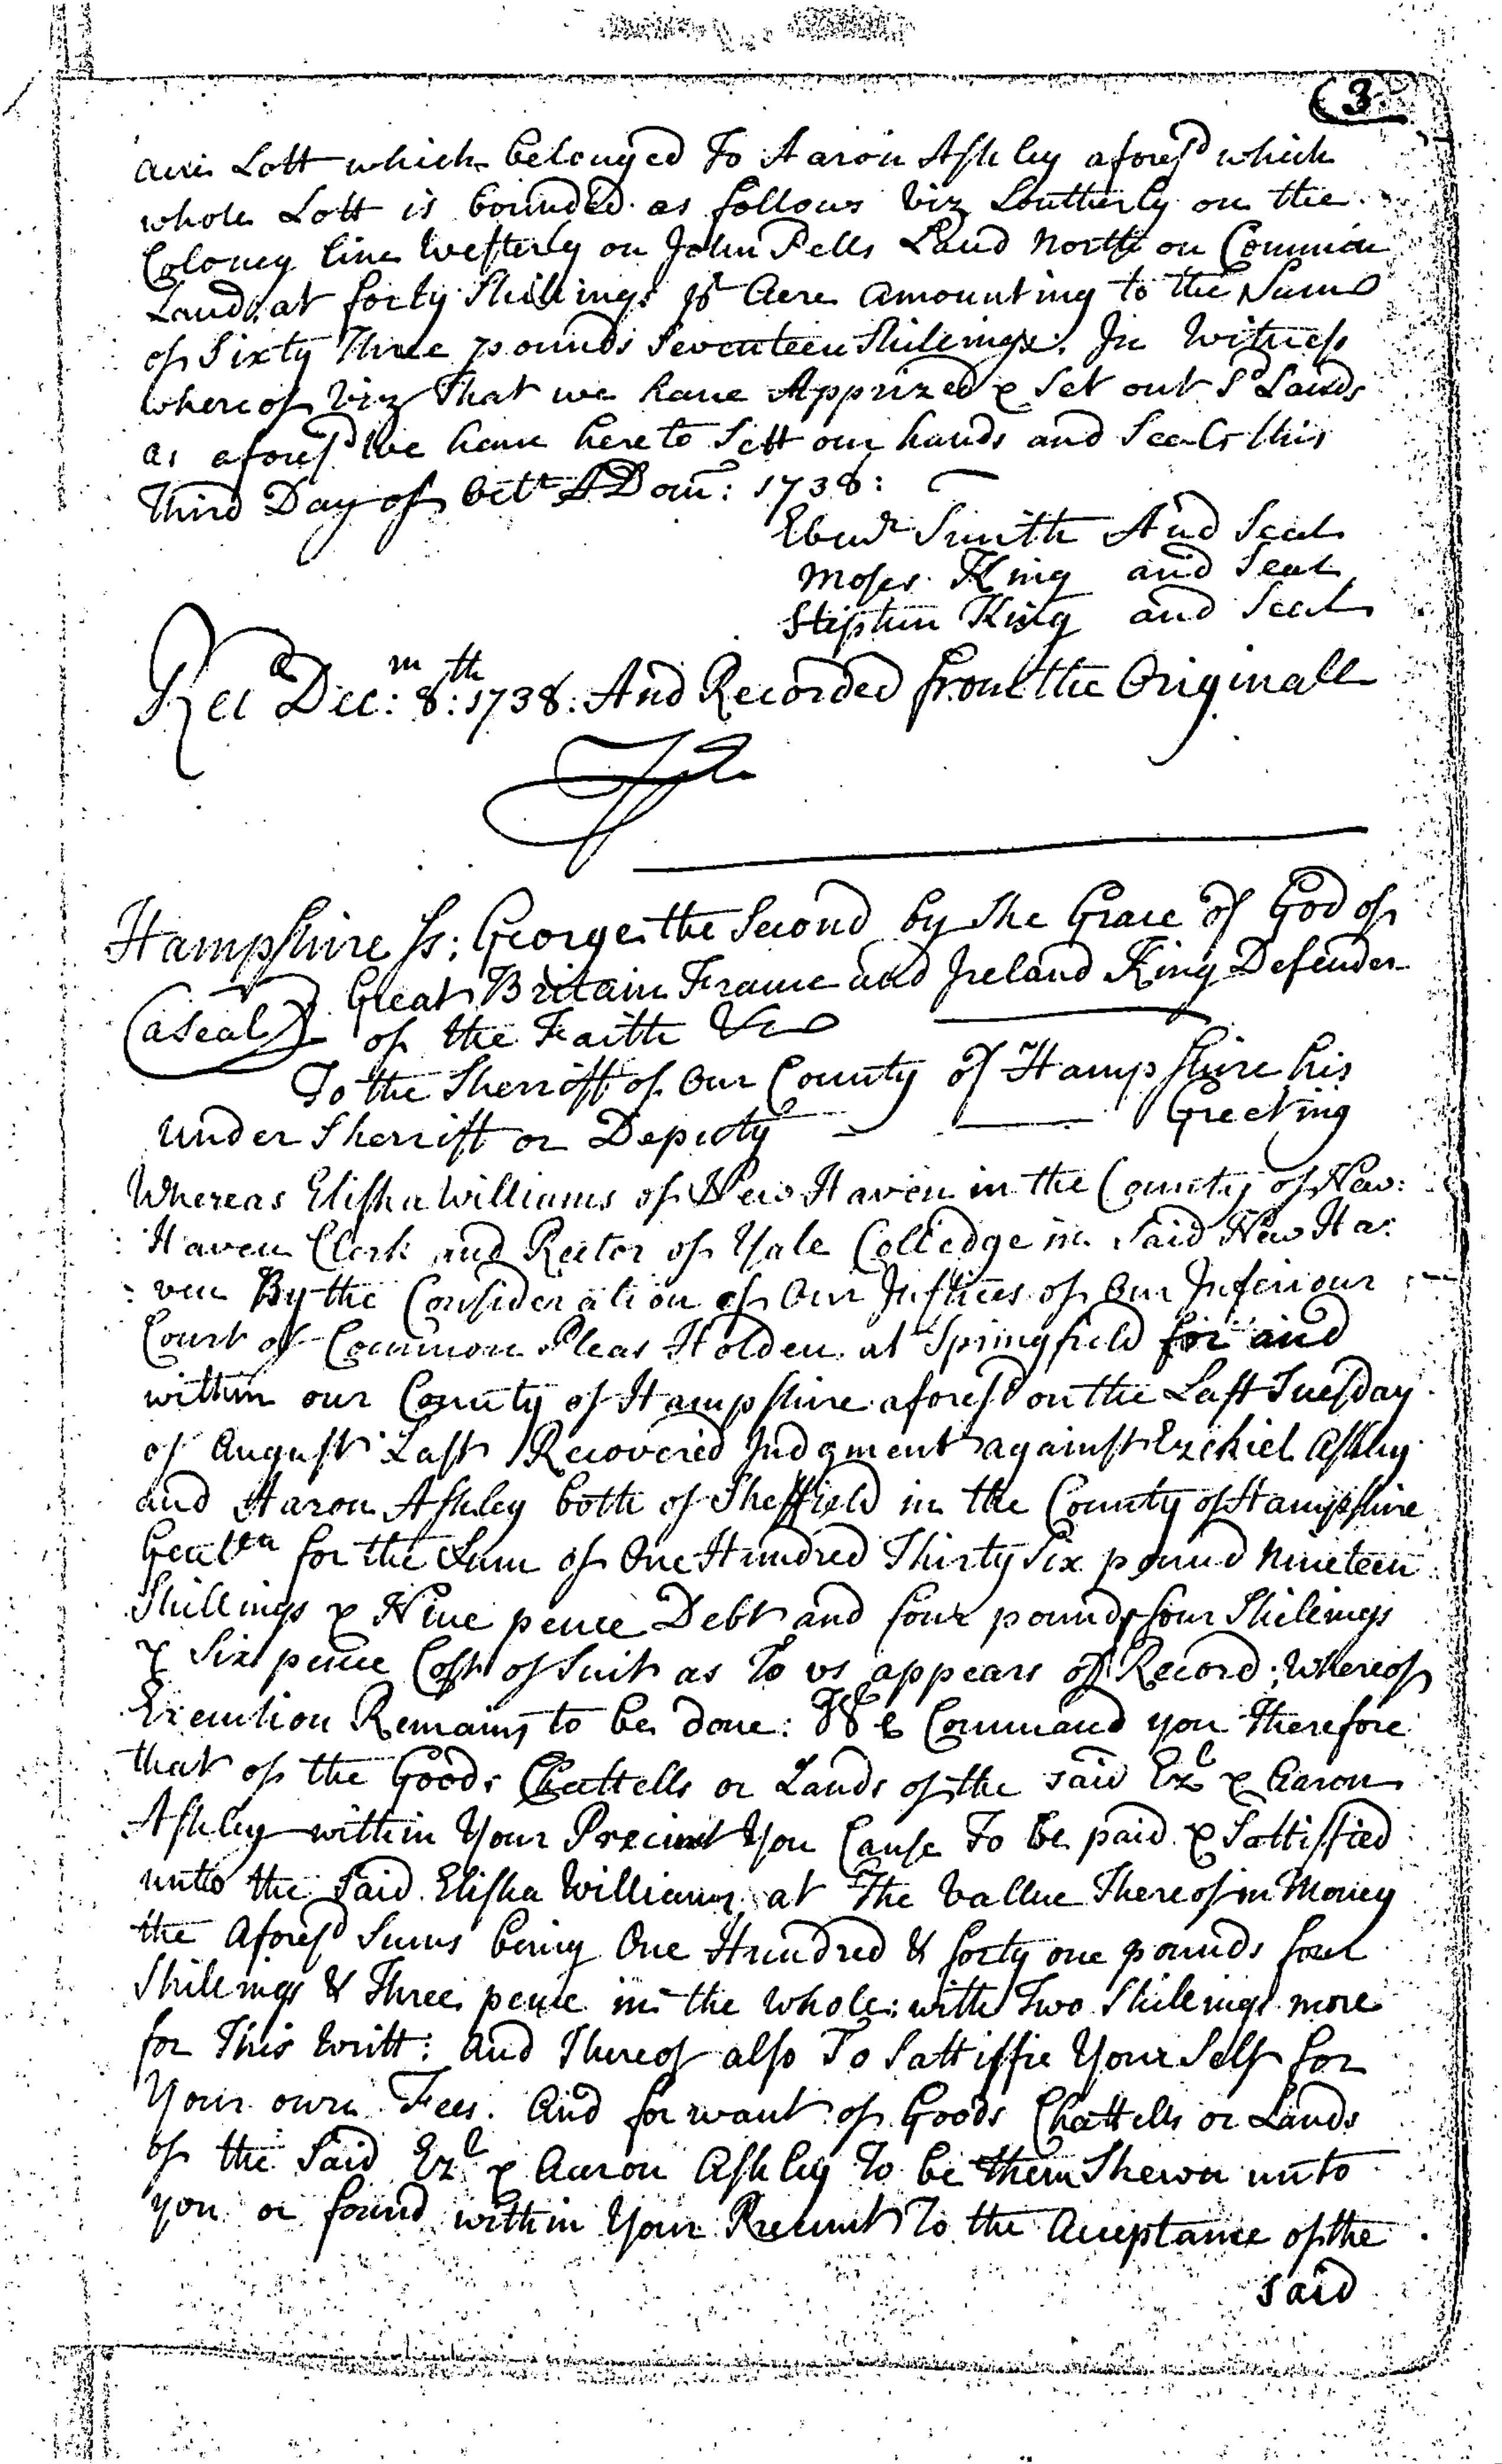 (3
acre Lott which belonged To Aaron Ashley afores.d which
whole Lott is bounded as follows viz Southerly on the
Coloney line Westerly on John Pells Land North on Common
Land at forty Shillings pr Acre amounting to the Sum
of Sixty Three pounds Seventeen Shillings. In Witness
whereof viz That we have Apprized & Set out Sd Lands
as aforesd We have hereto Sett our hands and Seals this
Third Day of Octr A Dom: 1738:
Ebenr Smith And Seal
Moses King and Seal
Stephen King and Seal
Recd Decm: 8th: 1738: And Recorded from the Originall
Hampshire Ss: George the Second by the Grace of God of
(a Seal) Great Britain France and Ireland King Defender
of the Faith &c
To the Sherriff of Our County of Hampshire his
under Sherriff or Deputy Greeting
Whereas Elisha Williams of New Haven in the County of New:
Haven Clerk and Rector of Yale Colledge in Said New Ha:
:ven By the Consideration of Our Justices of Our Inferiour
Court of Common Pleas Holden at Springfield for and
within our County of Hampshire aforesd on the Last Tuesday
of August Last Recovered Judgment against Ezekiel Ashley
and Aaron Ashley both of Sheffield in the County of Hampshire
Gentn for the Sum of One Hundred Thirty Six pound Nineteen
Shillings & Nine pence Debt and four pounds four Shilings
& Six pence Cost of Suit as To us appears of Record: Whereof
Execution Remains to be done: We Command you Therefore
that of the Goods Chattells or Lands of the said Ezl & Aaron
Ashley within Your Precinct You Cause To be paid & Sattisfied
unto the Said Elisha Williams at The Vallue Thereof in Money
the Aforesd Sums being One Hundred & forty one pounds four
Shilings & Three pence in the whole: with Two Shilings more
for This Writt: And Thereof also To Sattisfie Your Self for
Your own Fees. And for want of Goods Chattells or Lands
of the Said Ezl & Aaron Ashley To be them Shewn unto
you or found within Your Precinct To the Acceptance of the
said